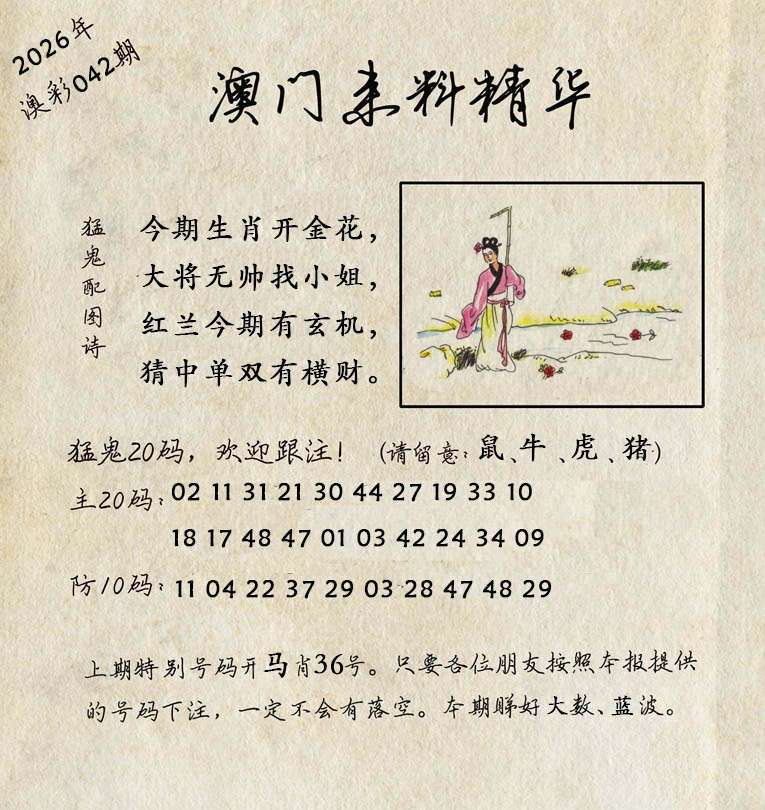 2026年
澳彩042期
澳门来料精华
猛鬼配图诗
今期生肖开金花，
大将无帅找小姐，
红兰今期有玄机，
猜中单双有横财。
猛鬼20码，欢迎跟注！（请留意：鼠、牛、虎、猪）
主20码：02 11 31 21 30 44 27 19 33 10
18 17 48 47 01 03 42 24 34 09
防10码：11 04 22 37 29 03 28 47 48 29
上期特别号码开马肖36号。只要各位朋友按照本报提供
的号码下注，一定不会有落空。本期睇好大数、蓝波。